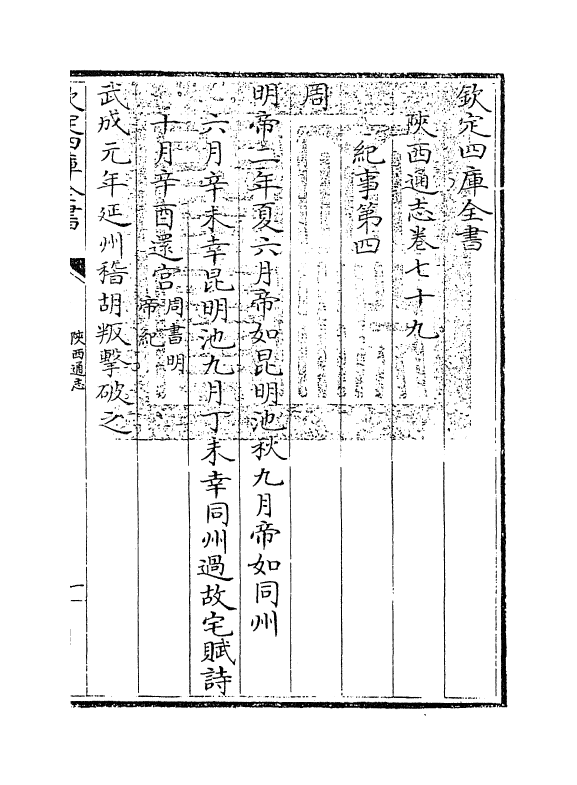 欽定四庫全書
陜西通志卷七十九
紀事第四
周
明帝二年夏六月帝如昆明池秋九月帝如同州
六月辛未幸昆明池九月丁未幸同州過故宅賦詩
十月辛酉還宫周書明
帝紀
武成元年延州稽胡叛擊破之
欽定四庫全書
陜西通志
一